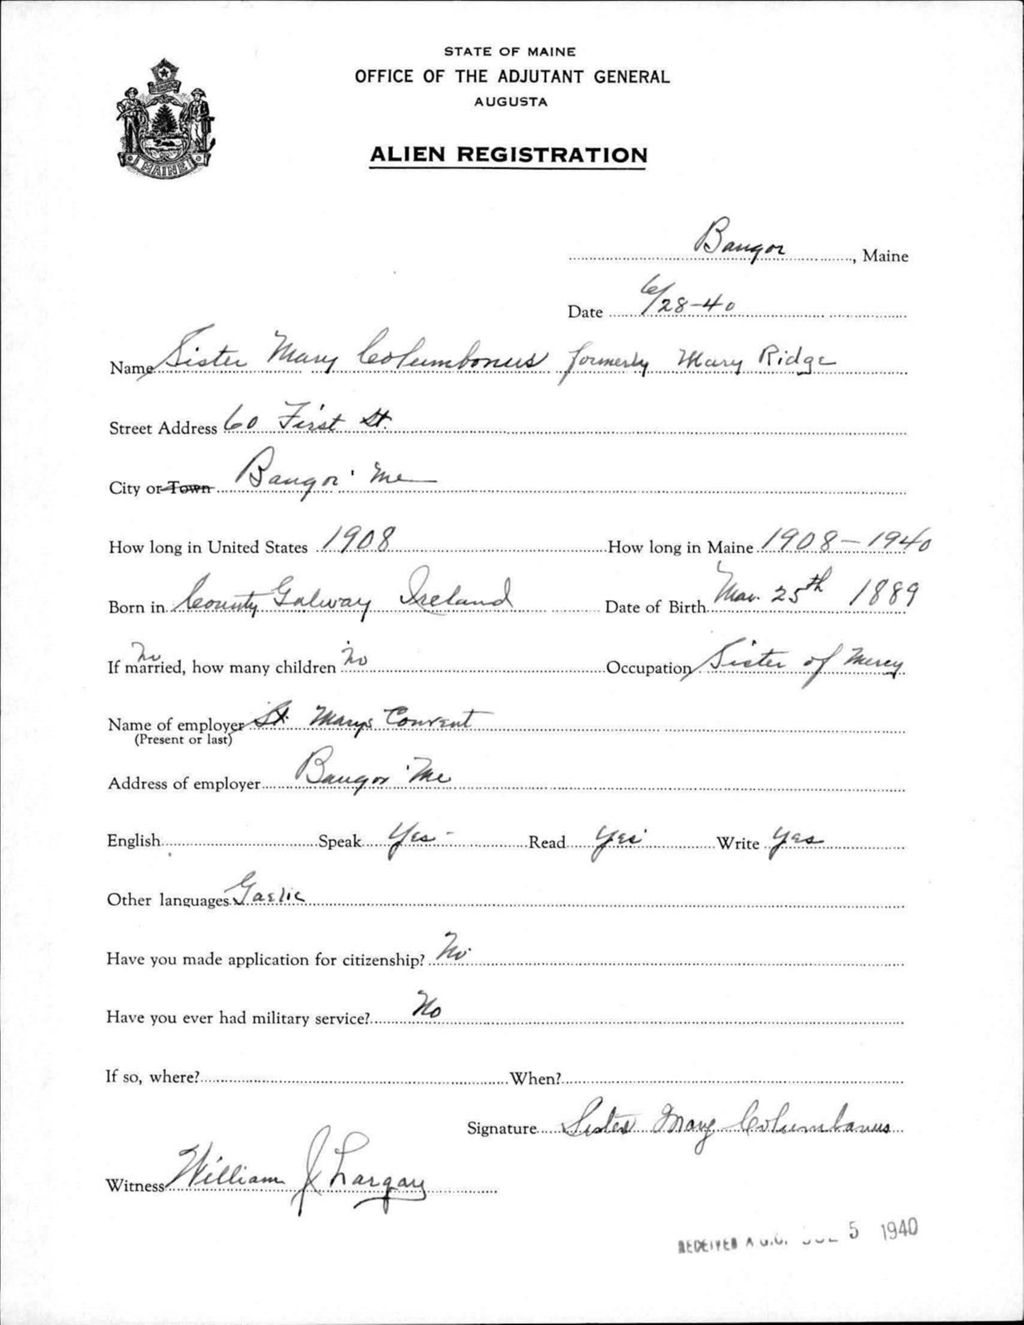 STATE OF MAINE
OFFICE OF THE ADJUTANT GENERAL
AUGUSTA
ALIEN REGISTRATION
MAINE
Bangor, Maine
Date 6/28-40
Name Sister Mary Columbonus formerly Mary Ridge
Street Address 60 First St.
City or Town Bangor Me
How long in United States 1908 How long in Maine 1908-1940
Born in County Galway Ireland Date of Birth Mar. 25th 1889
No
If married, how many children No Occupation Sister of Mercy
Name of employer St. Marys Convent
(Present or last)
Address of employer Bangor Me
English Speak Yes Read Yes Write Yes
Other languages Gaelic
Have you made application for citizenship? No
Have you ever had military service? No
If so, where? When?
Signature Sister Mary Columbanus
Witness William J Largay
RECEIVED A.G.O. 5 1940